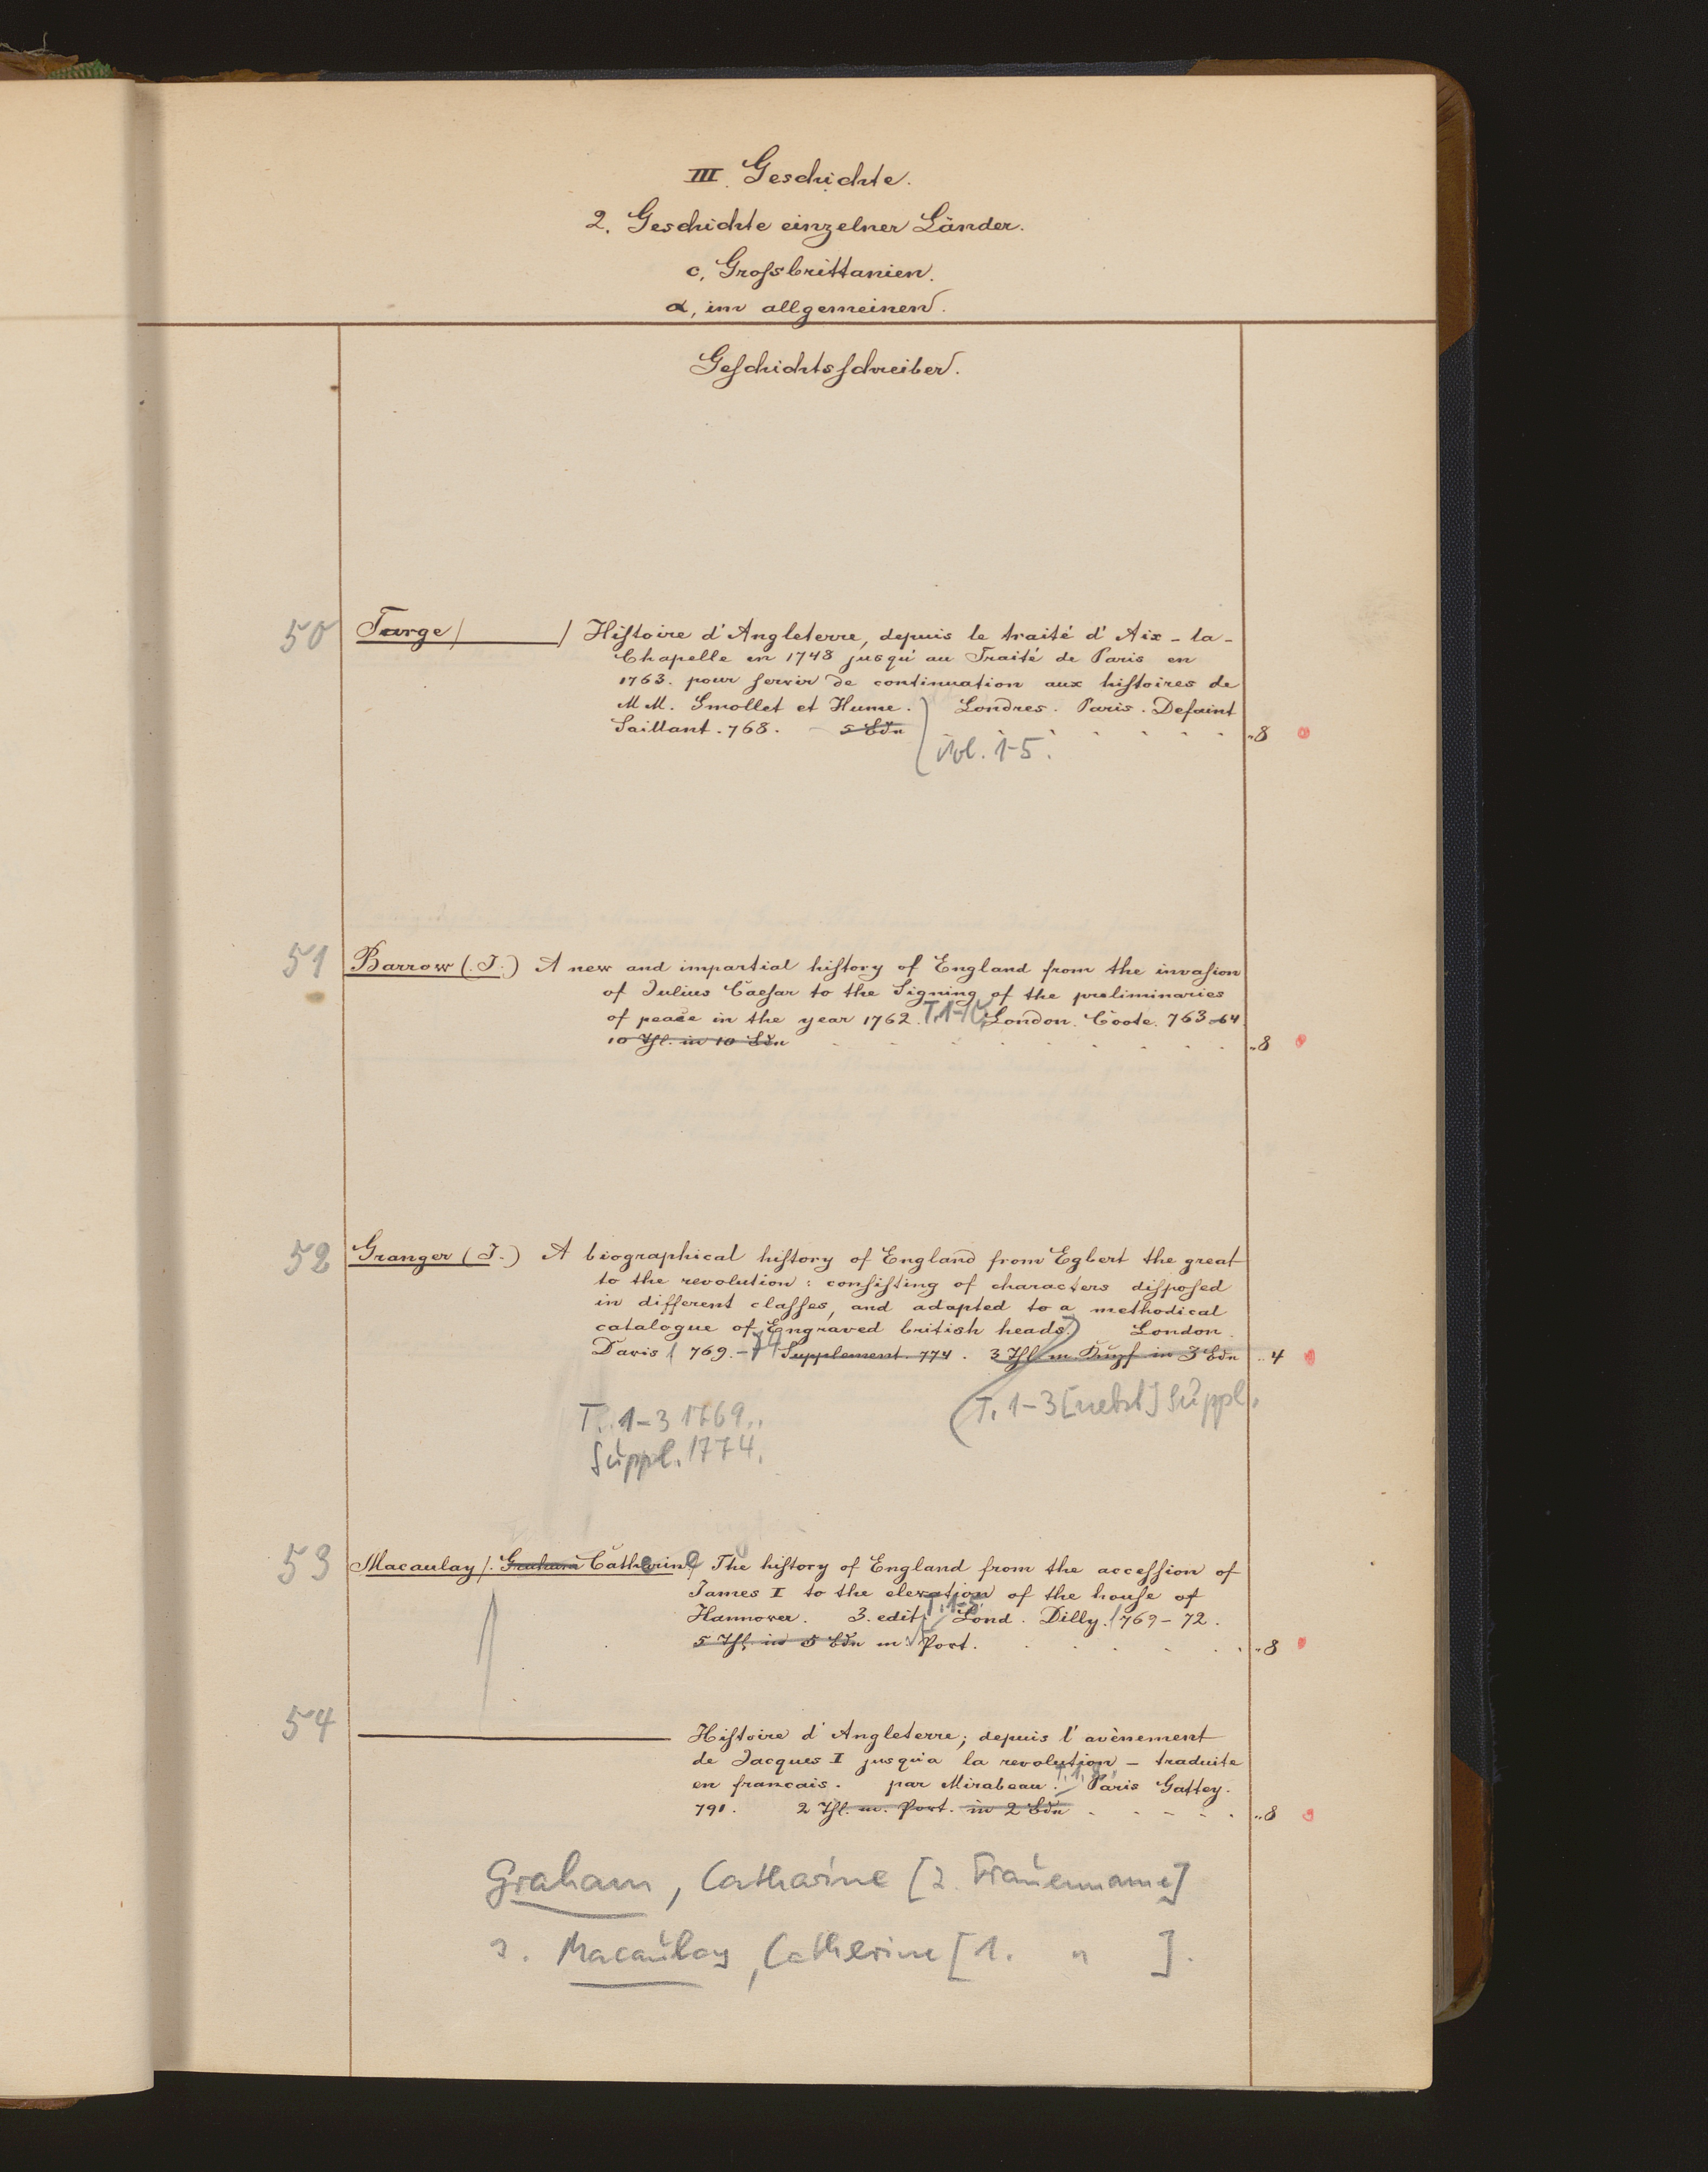 III. Geschichte.
2. Geschichte einzelner Länder.
c, Grossbrittanien.
α, im allgemeinen.
Geschichtsschreiber.
50 Targe / / Histoire d'Angleterre, depuis le traité d'Aix-la-
Chapelle en 1748 jusqu'au Traité de Paris en
1763. pour servir de continuation aux histoires de
M M. Smollet et Hume. Londres. Paris. Desaint
Saillant. 768. 5 Bdn „8
Vol. 1-5.
51 Barrow (J.) A new and impartial history of England from the invasion
of Julius Caesar to the Signing of the preliminaries
of peace in the year 1762. T. 1-10. London. Coote. 763-64.
10 Thl. in 10 Bdn „8
52 Granger (J.) A biographical history of England from Egbert the great
to the revolution: consisting of characters disposed
in different classes, and adapted to a methodical
catalogue of Engraved british heads. London.
Davis 769. - Supplement. 774. 3 Thl. m. Kupf. in 3 Bdn „4
(T. 1-3 [nebst] Suppl.
T. 1-3 1769.
Suppl. 1774.
53 Macaulay /. Graham Catherine The history of England from the accession of
James I to the elevation of the house of
Hannover. 3. edit. T. 1-5. Lond. Dilly. 769-72.
5 Thl. in 5 Bdn m. Port. „8
54 Histoire d'Angleterre; depuis l'avènement
de Jacques I jusqu'a la revolution - traduite
en francais. par Mirabeau. Paris Gattey.
791. 2 Thl. m. Port. in 2 Bdn „8
Graham, Catharine [2. Frauenname]
s. Macaulay, Catherine [1. " ].